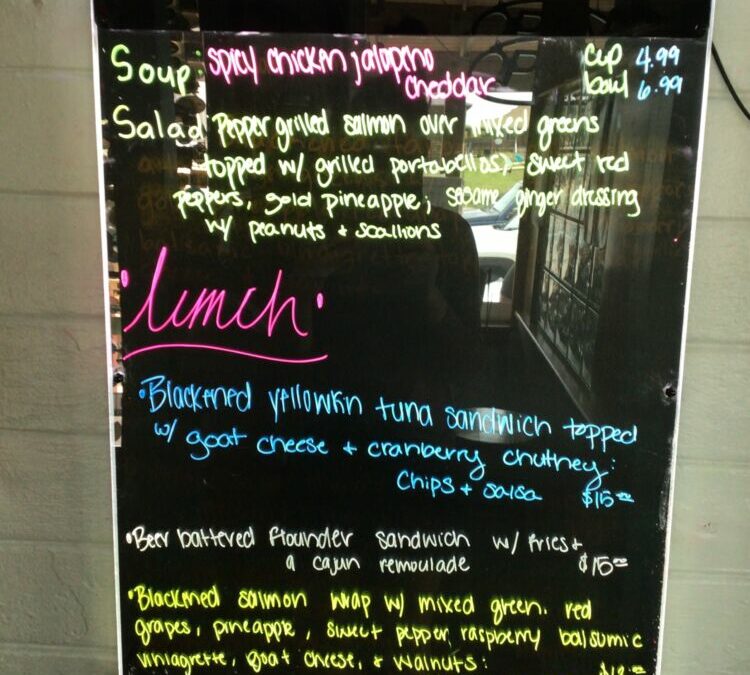 Soup: spicy chicken jalapeno cup 4.99
cheddar bowl 6.99
Salad Pepper grilled salmon over mixed greens
topped w/ grilled portabellas, sweet red
peppers, gold pineapple; sesame ginger dressing
w/ peanuts + scallions
•lunch•
•Blackened yellowfin tuna sandwich topped
w/ goat cheese + cranberry chutney:
Chips + salsa $15.00
•Beer battered flounder sandwich w/ fries +
a cajun remoulade $15.00
•Blackened salmon wrap w/ mixed green, red
grapes, pineapple, sweet pepper, raspberry balsumic
viniagrette, goat cheese, + walnuts: